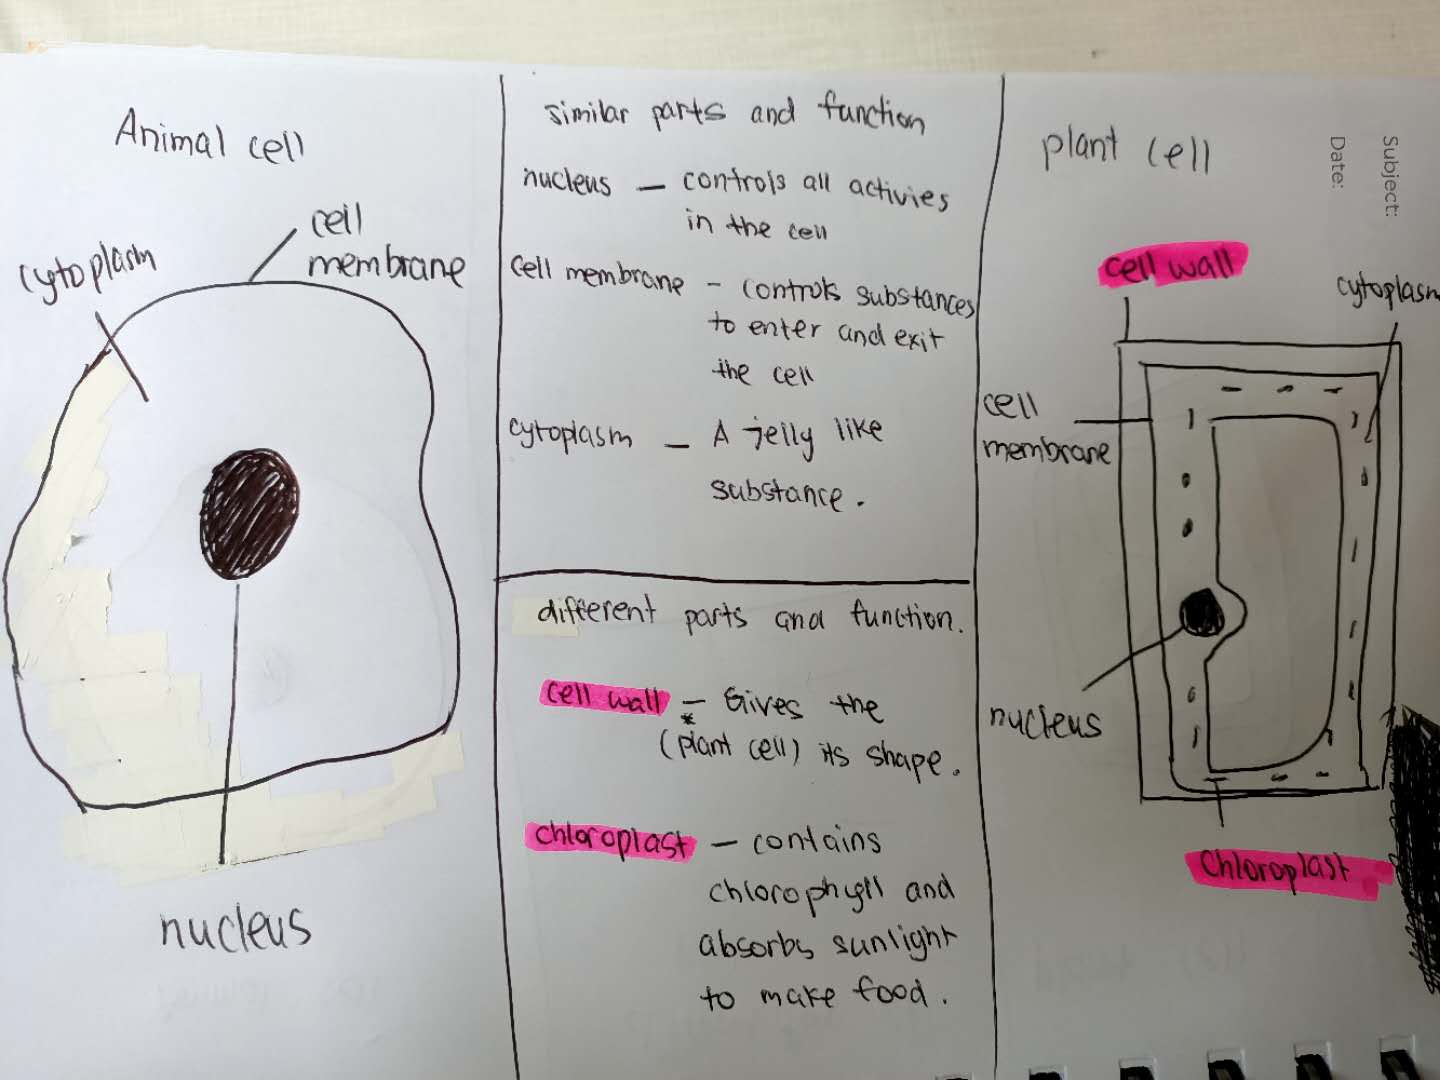 Animal cell
cytoplasm
cell
membrane
nucleus
similar parts and function
nucleus — controls all activies
in the cell
cell membrane – controls substances
to enter and exit
the cell
cytoplasm – A jelly like
substance.
different parts and function.
cell wall – Gives the
* (plant cell) its shape.
chloroplast – contains
chlorophyll and
absorbs sunlight
to make food.
plant cell
Subject:
Date:
cell wall
cytoplasm
cell
membrane
nucleus
Chloroplast